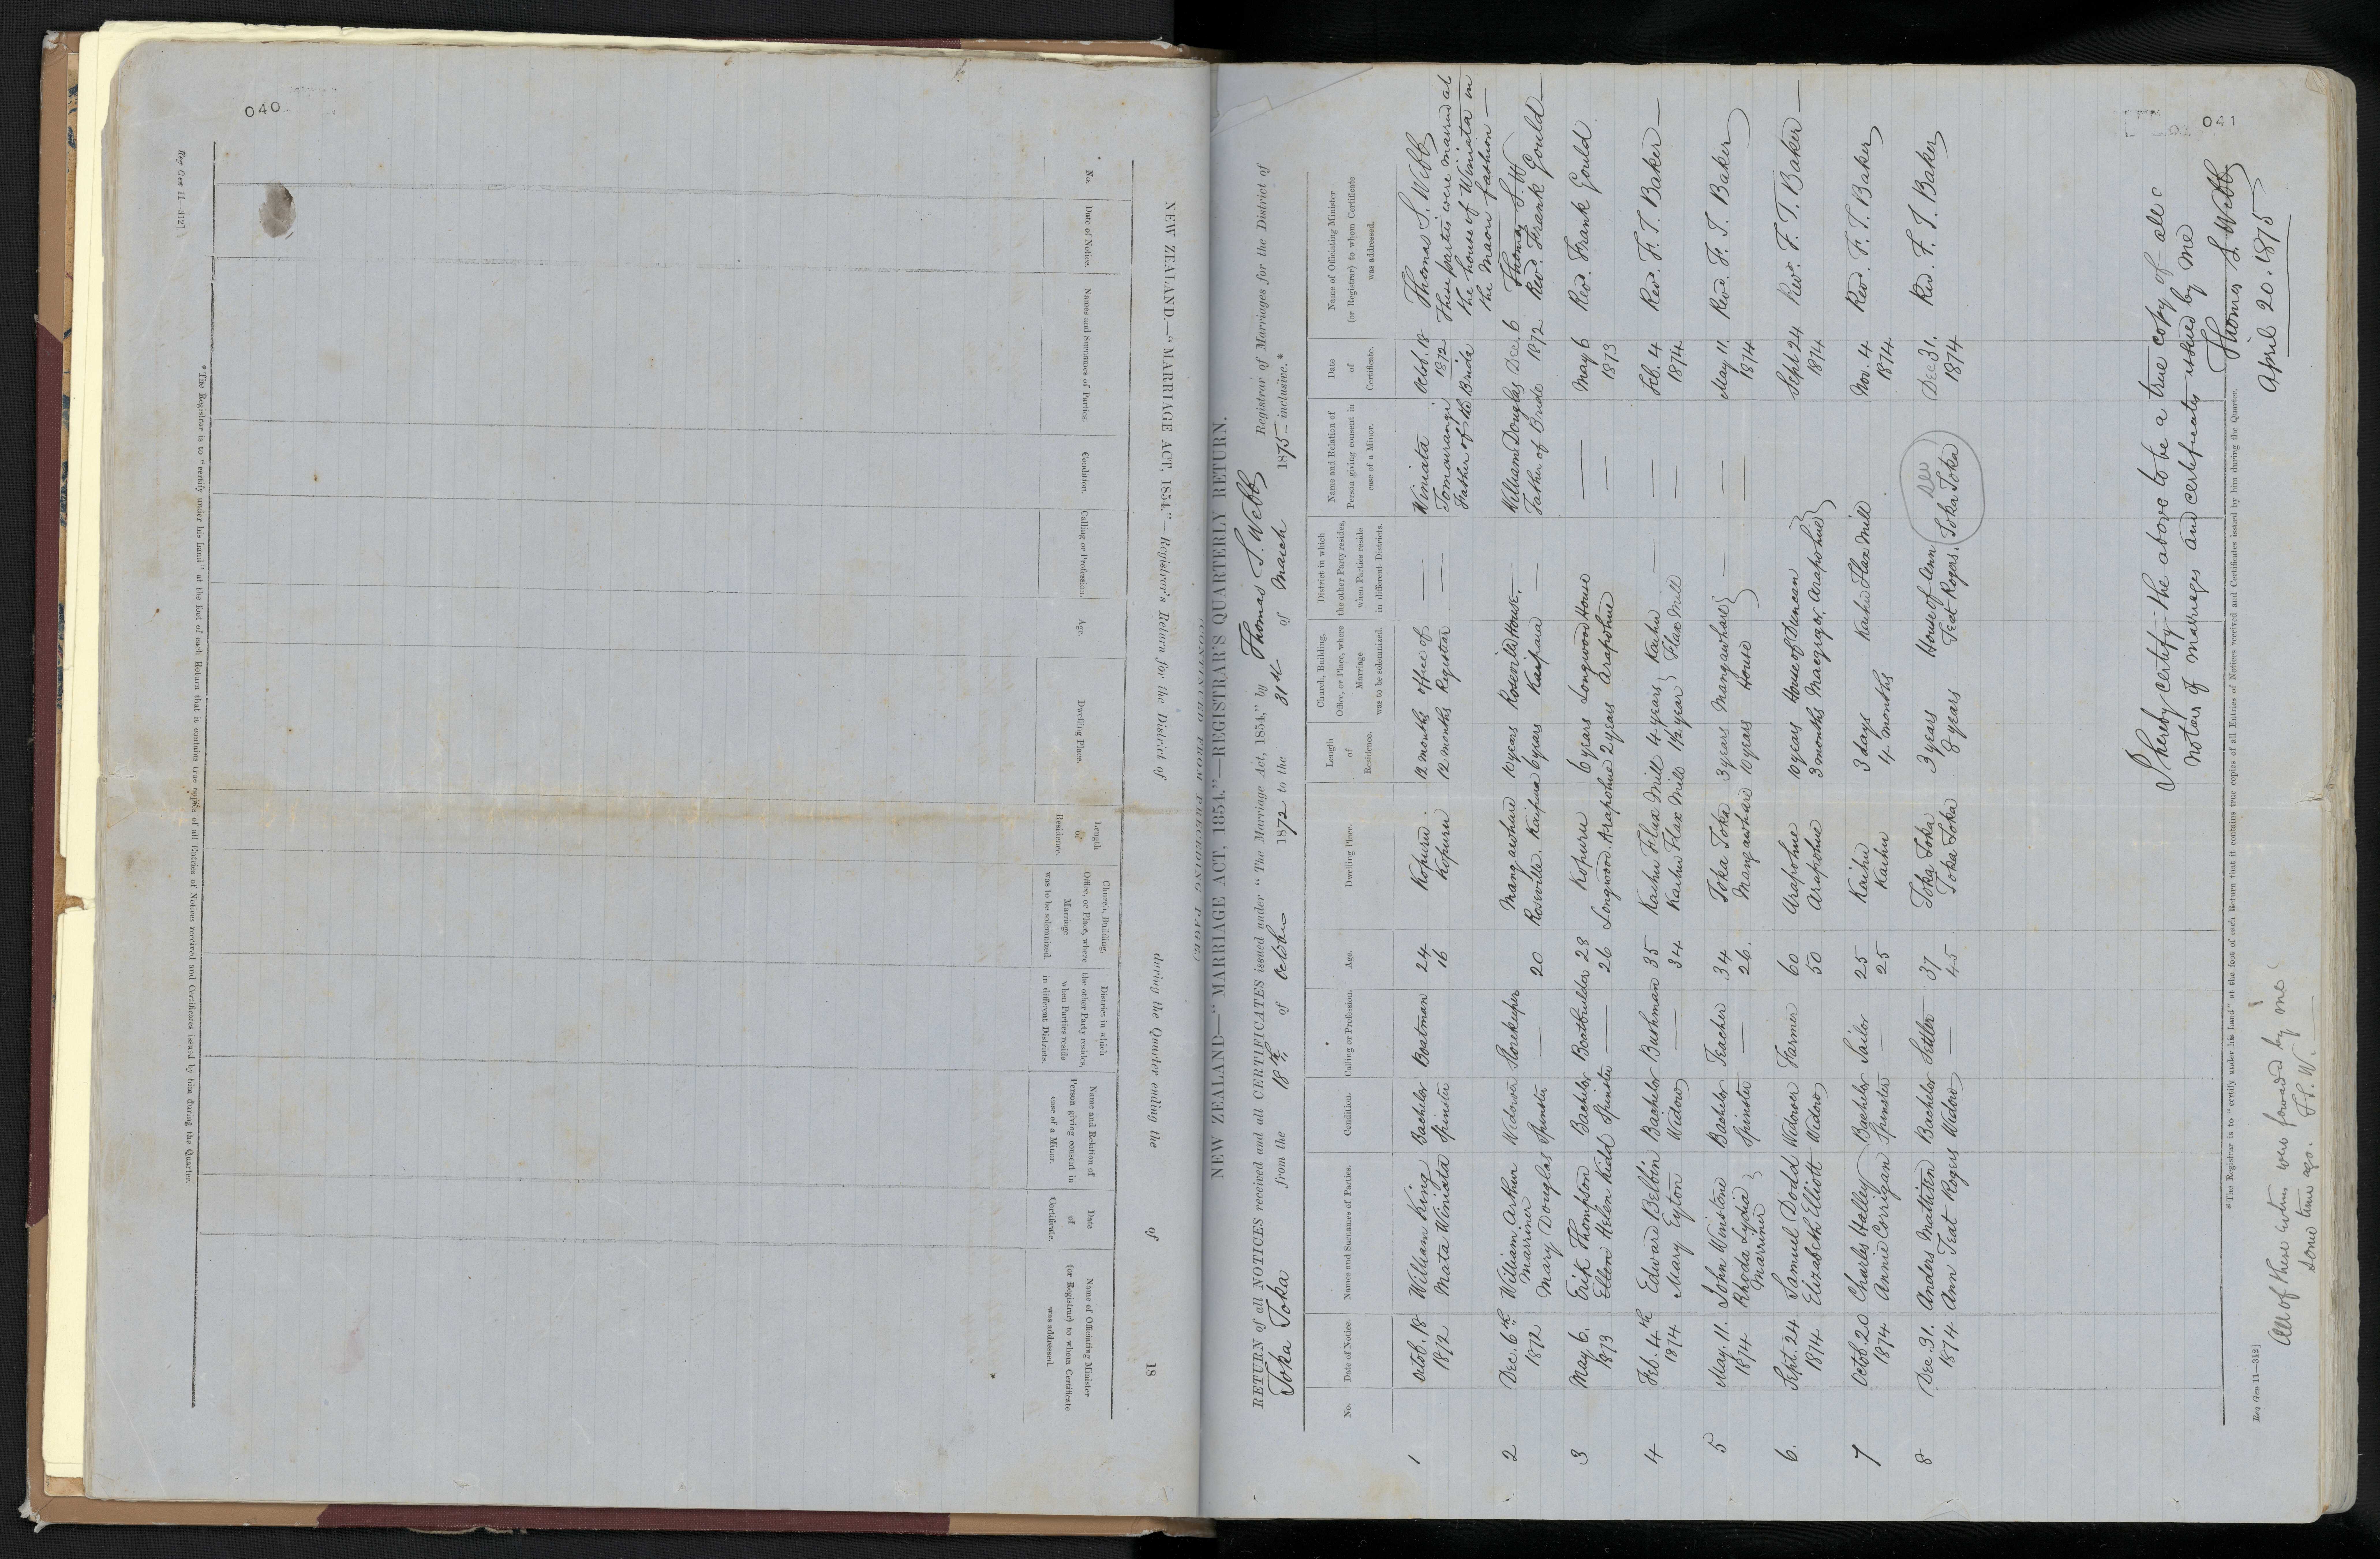 040
Reg Gen 11—312]
No.
Date of Notice.
Names and Surnames of Parties.
Condition.
Calling or Profession.
Age.
Dwelling Place.
Length
of
Residence.
Church, Building,
Office, or Place, where
Marriage
was to be solemnized.
District in which
the other Party resides,
when Parties reside
in different Districts.
Name and Relation of
Person giving consent in
case of a Minor.
Date
of
Certificate.
Name of Officiating Minister
(or Registrar) to whom Certificate
was addressed.
NEW ZEALAND.—"MARRIAGE ACT, 1854."—Registrar's Return for the District of during the Quarter ending the of 18
CONTINUED FROM PRECEDING PAGE.
*The Registrar is to "certify under his hand" at the foot of each Return that it contains true copies of all Entries of Notices received and Certificates issued by him during the Quarter.
041
NEW ZEALAND—"MARRIAGE ACT, 1854."—REGISTRAR'S QUARTERLY RETURN.
RETURN of all NOTICES received and all CERTIFICATES issued under "The Marriage Act, 1854," by Thomas S. Webb Registrar of Marriages for the District of
Toka Toka from the 18th of October 1872 to the 31st of March 1875 inclusive.*
No.
Date of Notice.
Names and Surnames of Parties.
Condition.
Calling or Profession.
Age.
Dwelling Place.
Length
of
Residence.
Church, Building,
Office, or Place, where
Marriage
was to be solemnized.
District in which
the other Party resides,
when Parties reside
in different Districts.
Name and Relation of
Person giving consent in
case of a Minor.
Date
of
Certificate.
Name of Officiating Minister
(or Registrar) to whom Certificate
was addressed.
1 Octob. 18 William King Bachelor Boatman 24 Kopuru 12 months office of — Winiata Octob. 18 Thomas S. Webb
1872 Mata Winiata Spinster 16 Kopuru 12 months Registrar — Tomairangi 1872 These parties were married at
Father of the Bride the house of Winiata in
the Maori fashion —
2 Dec. 6th William Arthur Widower Storekeeper Mangawhare 10 years Roseville House, — William Douglas Dec. 6 Thomas S. W
1872 Marriner — 20 Roseville. Kaipara 6 years Kaipara — Father of Bride 1872 Rev. Frank Gould —
Mary Douglas Spinster
3 May 6. Erik Thompson Bachelor Boatbuilder 28 Kopuru 6 years Longwood House — May 6 Rev. Frank Gould
1873 Ellen Helen Kidd Spinster — 26 Longwood. Arapohue 2 years Arapohue — 1873
4 Feb. 4th Edward Belbin Bachelor Bushman 35 Kaihu Flax Mill 4 years Kaihu — — Feb. 4 Rev. F. T. Baker —
1874 Mary Eyton Widow — 34 Kaihu Flax Mill 1½ year Flax Mill — 1874
5 May. 11. John Winstone Bachelor Teacher 34 Toka Toka 3 years Mangawhare — — May 11. Rev. F. T. Baker
1874 Rhoda Lydia Spinster — 26. Mangawhare 10 years House — 1874
Marriner
6. Sept. 24 Samuel Dodd Widower Farmer 60 Arapohue 10 years House of Duncan Sept 24 Rev. F. T. Baker —
1874 Elizabeth Elliott Widow 50 Arapohue 3 months Macgregor, Arapohue 1874
7 Octob. 20 Charles Halley Bachelor Sailor 25 Kaihu 3 days Kaihu Flax Mill Nov. 4 Rev. F. T. Baker
1874 Annie Corrigan Spinster — 25 Kaihu 4 months 1874
8 Dec. 31. Anders Mathisen Bachelor Settler 37 Toka Toka 3 years House of Ann Dec 31. Rev. F. T. Baker
1874 Ann Teat Rogers Widow — 45 Toka Toka 8 years Teat Rogers, Toka Toka 1874
I hereby certify the above to be a true copy of all
notices of marriages and certificates issued by me
Thomas S. Webb
April 20. 1875
*The Registrar is to "certify under his hand" at the foot of each Return that it contains true copies of all Entries of Notices received and Certificates issued by him during the Quarter.
Reg Gen 11—312]
All of these returns were forwarded by me
some time ago. T.S.W.